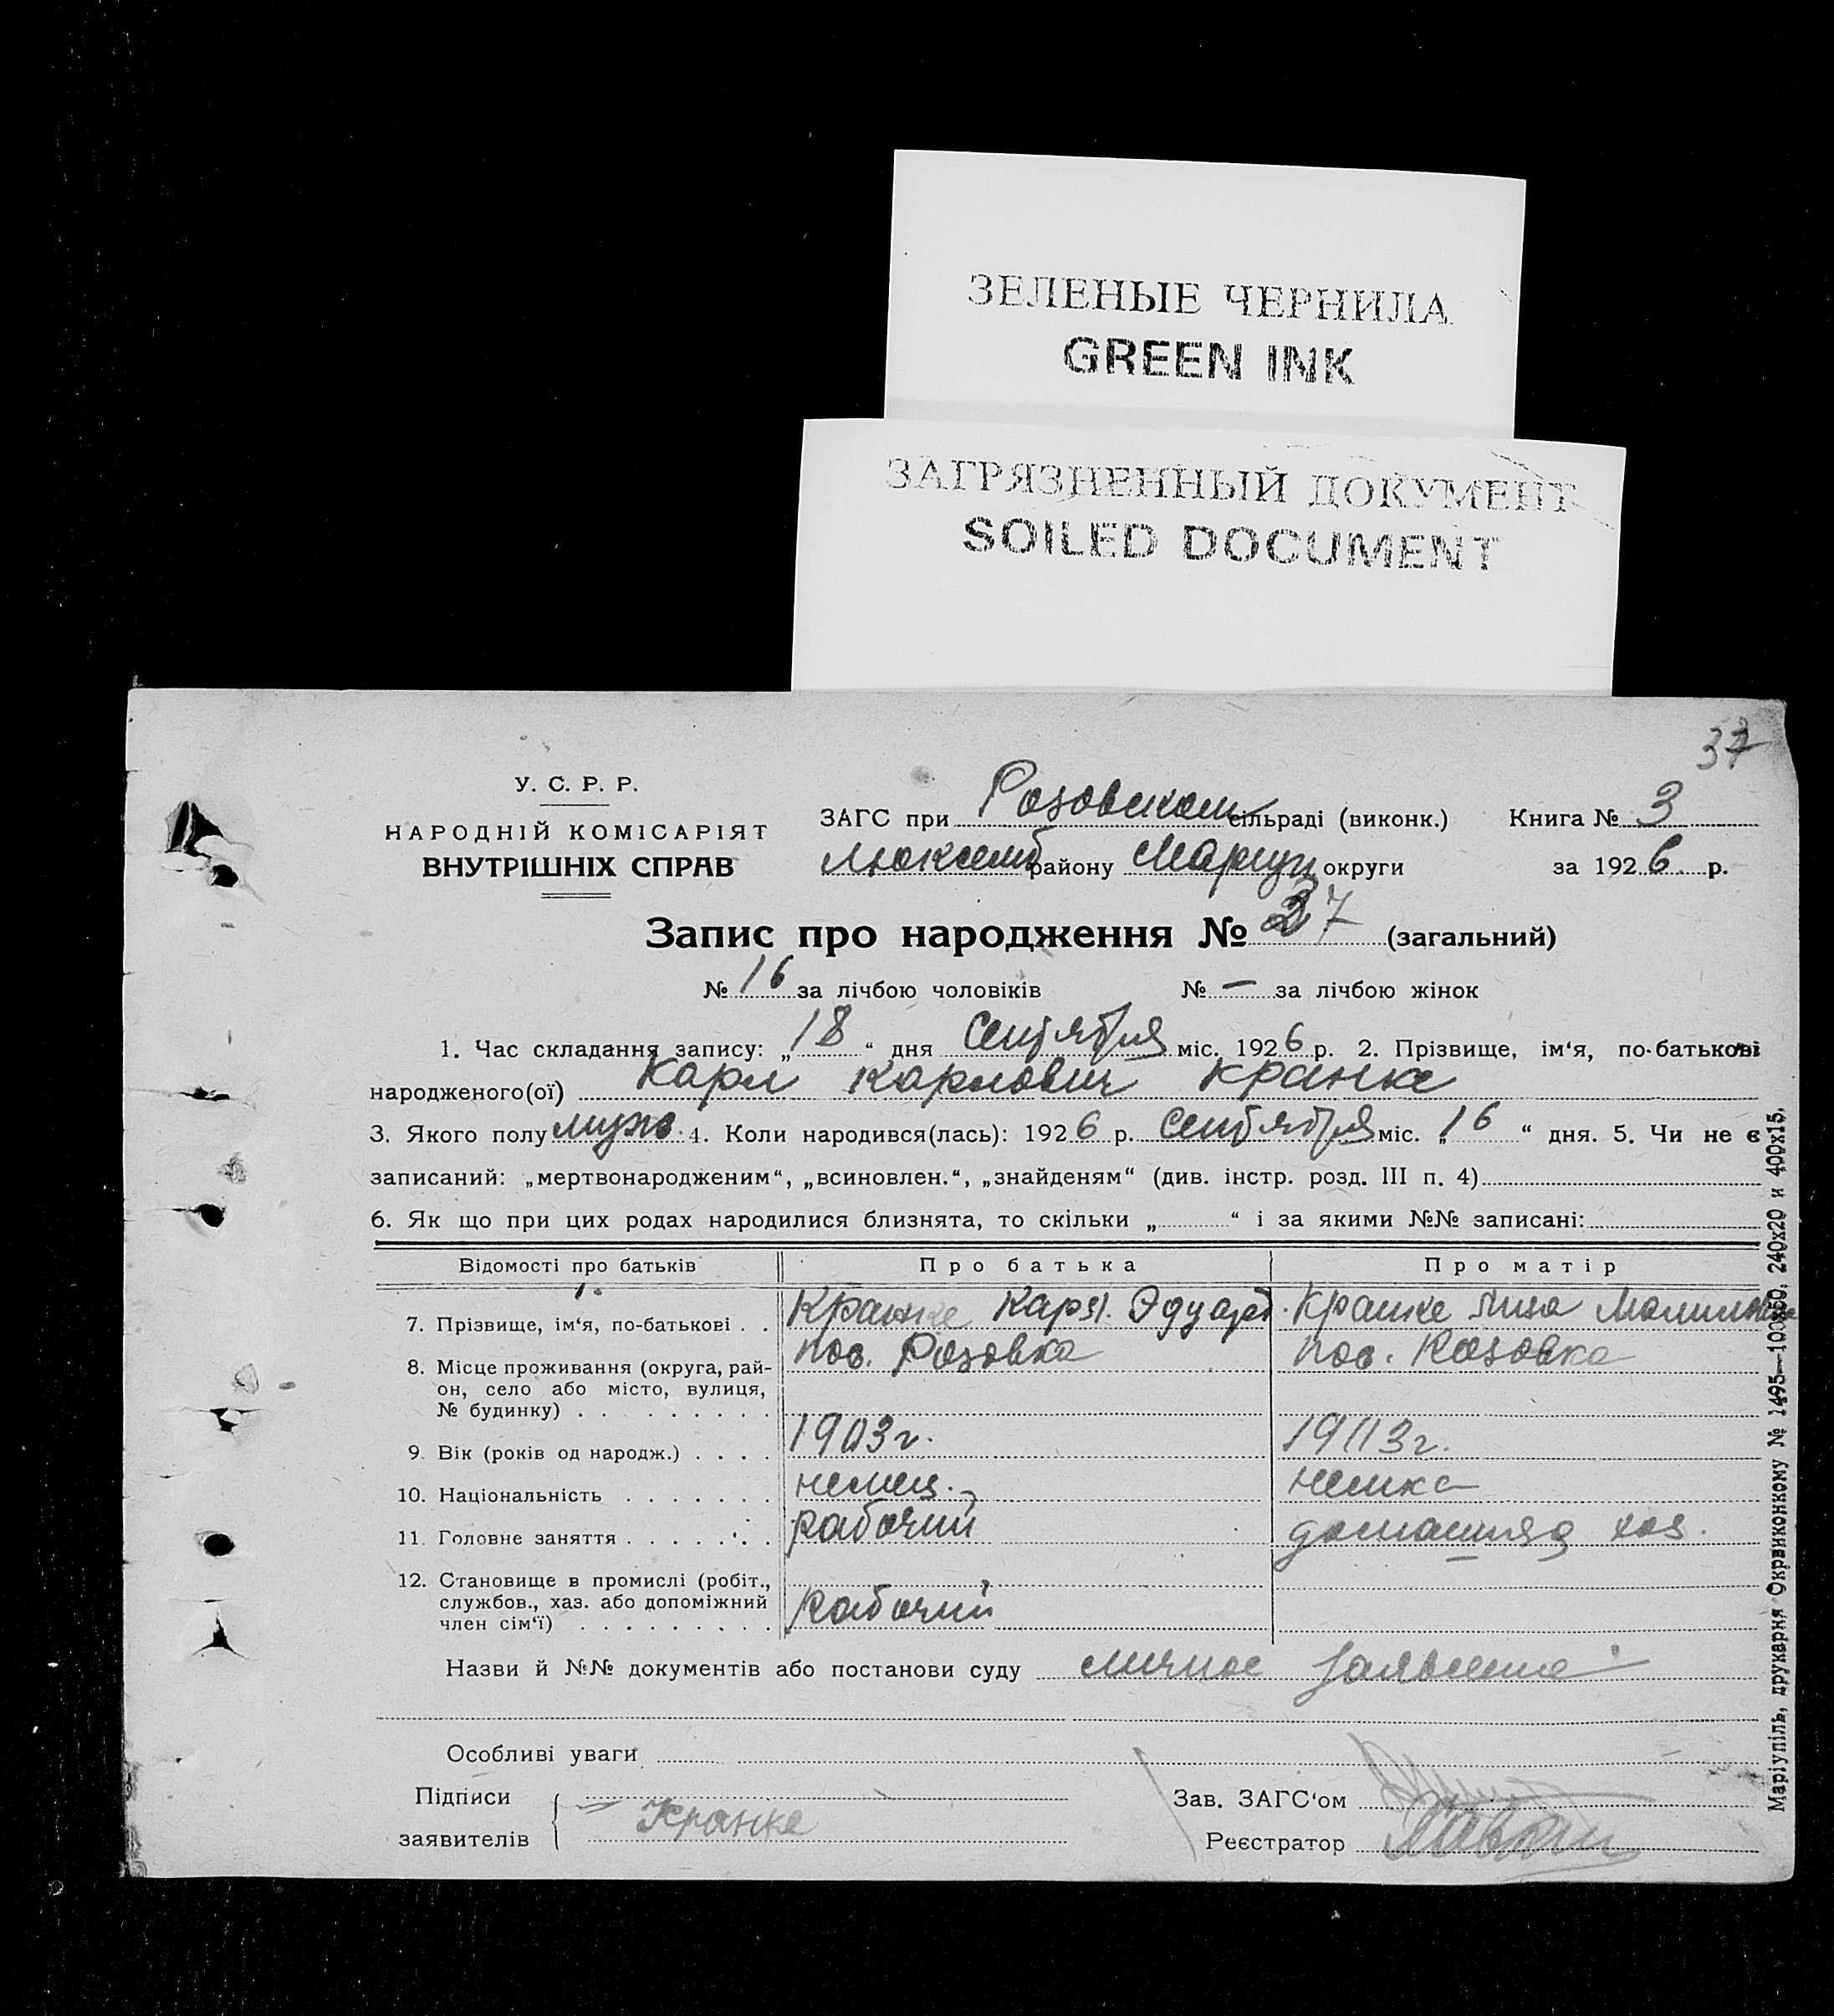 ЗЕЛЕНЫЕ ЧЕРНИЛА
GREEN INK
ЗАГРЯЗНЕННЫЙ ДОКУМЕНТ
SOILED DOCUMENT
37
У. С. Р. Р.
НАРОДНІЙ КОМІСАРІЯТ
ВНУТРІШНІХ СПРАВ
ЗАГС при Розовском сільраді (виконк.) Книга № 3
Люксемб району Мариуп округи за 1926 р.
Запис про народження № 37 (загальний)
№ 16 за лічбою чоловіків № — за лічбою жінок
1. Час складання запису: „18“ дня Сентября міс. 1926 р. 2. Прізвище, ім‘я, по-батькові
народженого(ої) Карл Карлович Кранке
3. Якого полу муж. 4. Коли народився(лась): 1926 р. Сентября міс. „16“ дня. 5. Чи не є
записаний: „мертвонародженим“, „всиновлен.“, „знайденям“ (див. інстр. розд. III п. 4)
6. Як що при цих родах народилися близнята, то скільки „ “ і за якими №№ записані:
Відомості про батьків Про батька Про матір
7. Прізвище, ім‘я, по-батькові . . Кранке Карл. Эдуард. Кранке Лиза
8. Місце проживання (округа, рай- пос. Розовка пос. Розовка
он, село або місто, вулиця,
№ будинку) . . . . . . . . .
9. Вік (років од народж.) . . . . 1903 г. 1903 г.
10. Національність . . . . . . . немец. немка
11. Головне заняття . . . . . . . рабочий домашняя хоз.
12. Становище в промислі (робіт.,
службов., хаз. або допоміжний
член сім‘ї) . . . . . . . . . рабочий
Назви й №№ документів або постанови суду личное заявление
Особливі уваги
Підписи Зав. ЗАГС‘ом
заявителів Кранке Реєстратор
Маріупіль, друкарня Окрвиконкому № 1495—100х50, 240х20 и 400х15.